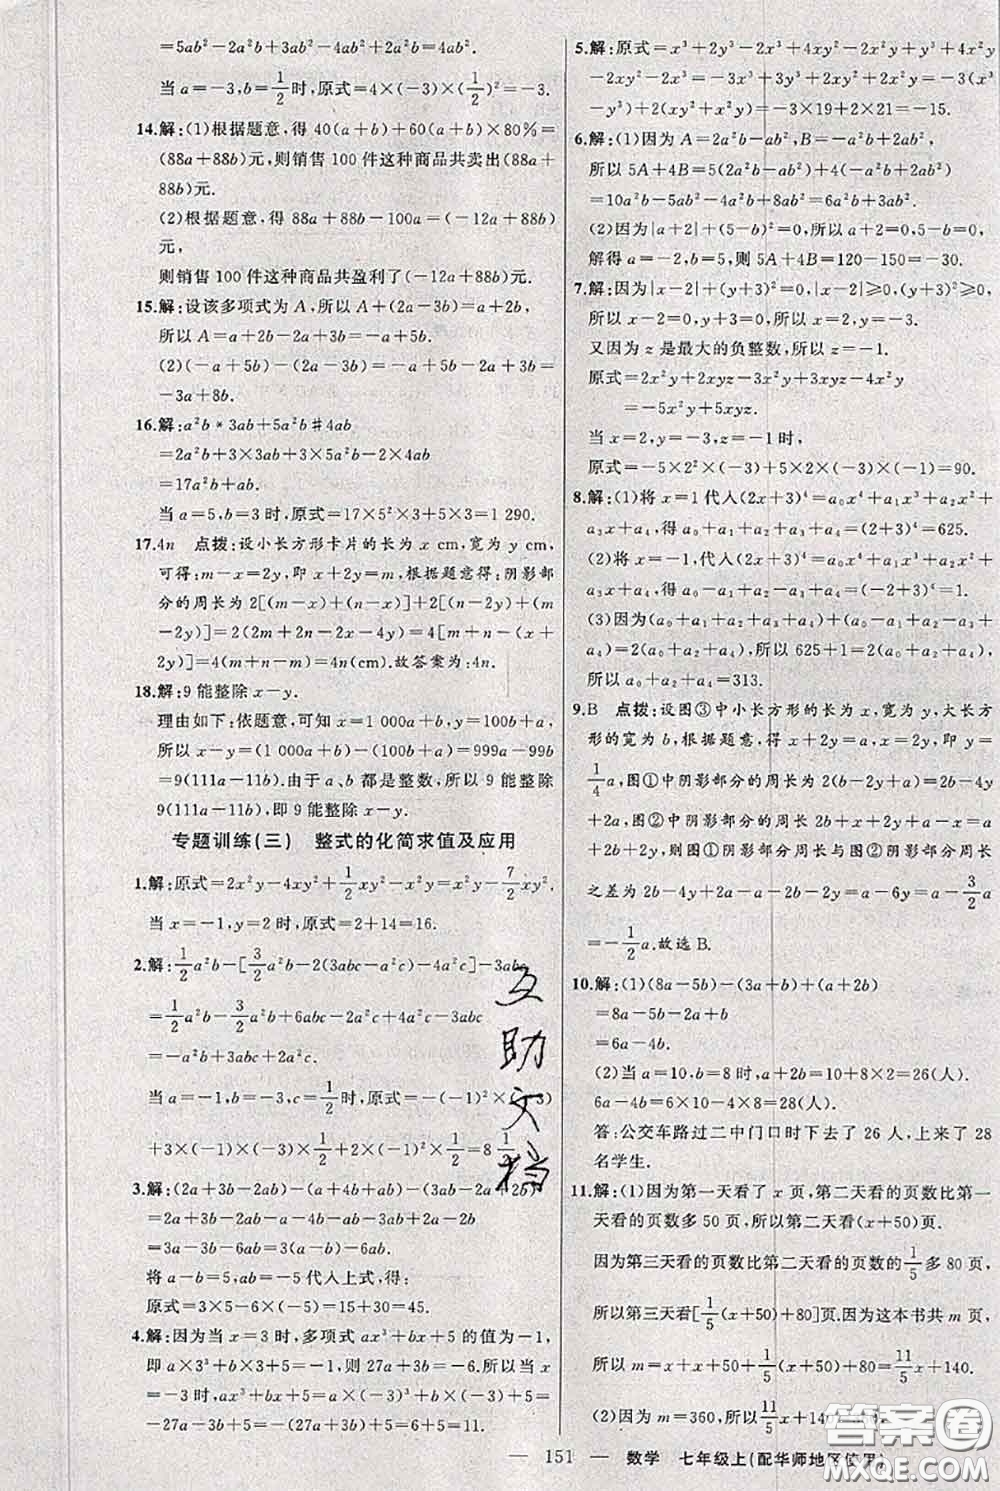 =5ab²-2a²b+3ab²-4ab²+2a²b=4ab².
当a=-3,b=1/2时,原式=4×(-3)×(1/2)²=-3.
14.解:(1)根据题意,得40(a+b)+60(a+b)×80%=
(88a+88b)元,则销售100件这种商品共卖出(88a+
88b)元.
(2)根据题意,得88a+88b-100a=(-12a+88b)
元,
则销售100件这种商品共盈利了(-12a+88b)元.
15.解:设该多项式为A,所以A+(2a-3b)=a+2b,
所以A=a+2b-2a+3b=-a+5b.
(2)(-a+5b)-(2a-3b)=-a+5b-2a+3b=
-3a+8b.
16.解:a²b*3ab+5a²b#4ab
=2a²b+3×3ab+3×5a²b-2×4ab
=17a²b+ab.
当a=5,b=3时,原式=17×5²×3+5×3=1 290.
17.4n 点拨:设小长方形卡片的长为x cm,宽为y cm,
可得:m-x=2y,即x+2y=m,根据题意得:阴影部
分的周长为2[(m-x)+(n-x)]+2[(n-2y)+(m
-2y)]=2(2m+2n-2x-4y)=4[m+n-(x+
2y)]=4(m+n-m)=4n(cm).故答案为:4n.
18.解:9能整除x-y.
理由如下:依题意,可知x=1 000a+b,y=100b+a,
所以x-y=(1 000a+b)-(100b+a)=999a-99b
=9(111a-11b).由于a、b都是整数,所以9能整除
9(111a-11b),即9能整除x-y.
专题训练(三) 整式的化简求值及应用
1.解:原式=2x²y-4xy²+1/2xy²-x²y=x²y-7/2xy².
当x=-1,y=2时,原式=2+14=16.
2.解:1/2a²b-[3/2a²b-2(3abc-a²c)-4a²c]-3abc
=1/2a²b-3/2a²b+6abc-2a²c+4a²c-3abc
=-a²b+3abc+2a²c.
当a=-1,b=-3,c=1/2时,原式=-(-1)²×(-3)
+3×(-1)×(-3)×1/2+2×(-1)²×1/2=8 1/2.
3.解:(2a+3b-2ab)-(a+4b+ab)-(3ab-2a+2b)
=2a+3b-2ab-a-4b-ab-3ab+2a-2b
=3a-3b-6ab.
将a-b=5,ab=-5代入上式,得:
原式=3×5-6×(-5)=15+30=45.
4.解:因为当x=3时,多项式ax³+bx+5的值为-1,
即a×3³+b×3+5=-1,所以27a+3b=-6.所以当x
=-3时,ax³+bx+5=a×(-3)³+b×(-3)+5=
-27a-3b+5=-(27a+3b)+5=6+5=11.
5.解:原式=x³+2y³-2x³+4xy²-2x²y+y³+4x²y
-2xy²-2x³=-3x³+3y³+2xy²+2x²y=-3(x³
-y³)+2(xy²+x²y)=-3×19+2×21=-15.
6.解:(1)因为A=2a²b-ab²,B=-a²b+2ab²,
所以5A+4B=5(2a²b-ab²)+4(-a²b+2ab²)
=10a²b-5ab²-4a²b+8ab²=6a²b+3ab².
(2)因为|a+2|+(5-b)²=0,所以a+2=0,5-b=0,
解得a=-2,b=5,则5A+4B=120-150=-30.
7.解:因为|x-2|+(y+3)²=0,|x-2|≥0,(y+3)²≥0,
所以x-2=0,y+3=0,所以x=2,y=-3.
又因为z是最大的负整数,所以z=-1.
原式=2x²y+x²y-2xyz+3xyz-4xz²... 
=-5x²y+5xyz.
当x=2,y=-3,z=-1时,
原式=-5×2²×(-3)+5×2×(-3)×(-1)=90.
8.解:(1)将x=1代人(2x+3)⁴=a₀x⁴+a₁x³+a₂x²+
a₃x+a₄,得a₀+a₁+a₂+a₃+a₄=(2+3)⁴=625.
(2)将x=-1,代入(2x+3)⁴=a₀x⁴+a₁x³+a₂x²+
a₃x+a₄,得a₀-a₁+a₂-a₃+a₄=(-2+3)⁴=1.
(3)因为(a₀+a₁+a₂+a₃+a₄)+(a₀-a₁+a₂-a₃
+a₄)=2(a₀+a₂+a₄),所以625+1=2(a₀+a₂+
a₄),所以a₀+a₂+a₄=313.
9.B 点拨:设图③中小长方形的长为x,宽为y,大长方
形的宽为b,根据题意,得x+2y=a,x=2y,即y=
1/4a,图①中阴影部分的周长为2(b-2y+a)=2b-4y
+2a,图②中阴影部分的周长2b+x+2y+a-x=
a+2b+2y,则图①阴影部分周长与图②阴影部分周长
之差为2b-4y+2a-a-2b-2y=a-6y=a-3/2a
=-1/2a.故选B.
10.解:(1)(8a-5b)-(3a+b)+(a+2b)
=8a-5b-2a+b
=6a-4b.
(2)当a=10,b=8时,a+2b=10+2×8=26(人).
6a-4b=6×10-4×8=28(人).
答:公交车路过二中门口时下去了26人,上来了28
名学生.
11.解:(1)因为第一天看了x页,第二天看的页数比第一
天看的页数多50页,所以第二天看(x+50)页.
因为第三天看的页数比第二天看的页数的1/5多80页,
所以第三天看[1/5(x+50)+80]页.因为这本书共m页,
所以m=x+(x+50)+1/5(x+50)+80=11/5x+140.
(2)因为m=360,所以11/5x+
— 151 — 数学 七年级上(配华师地区使用)
互助文档
答案圈
MXQE.COM